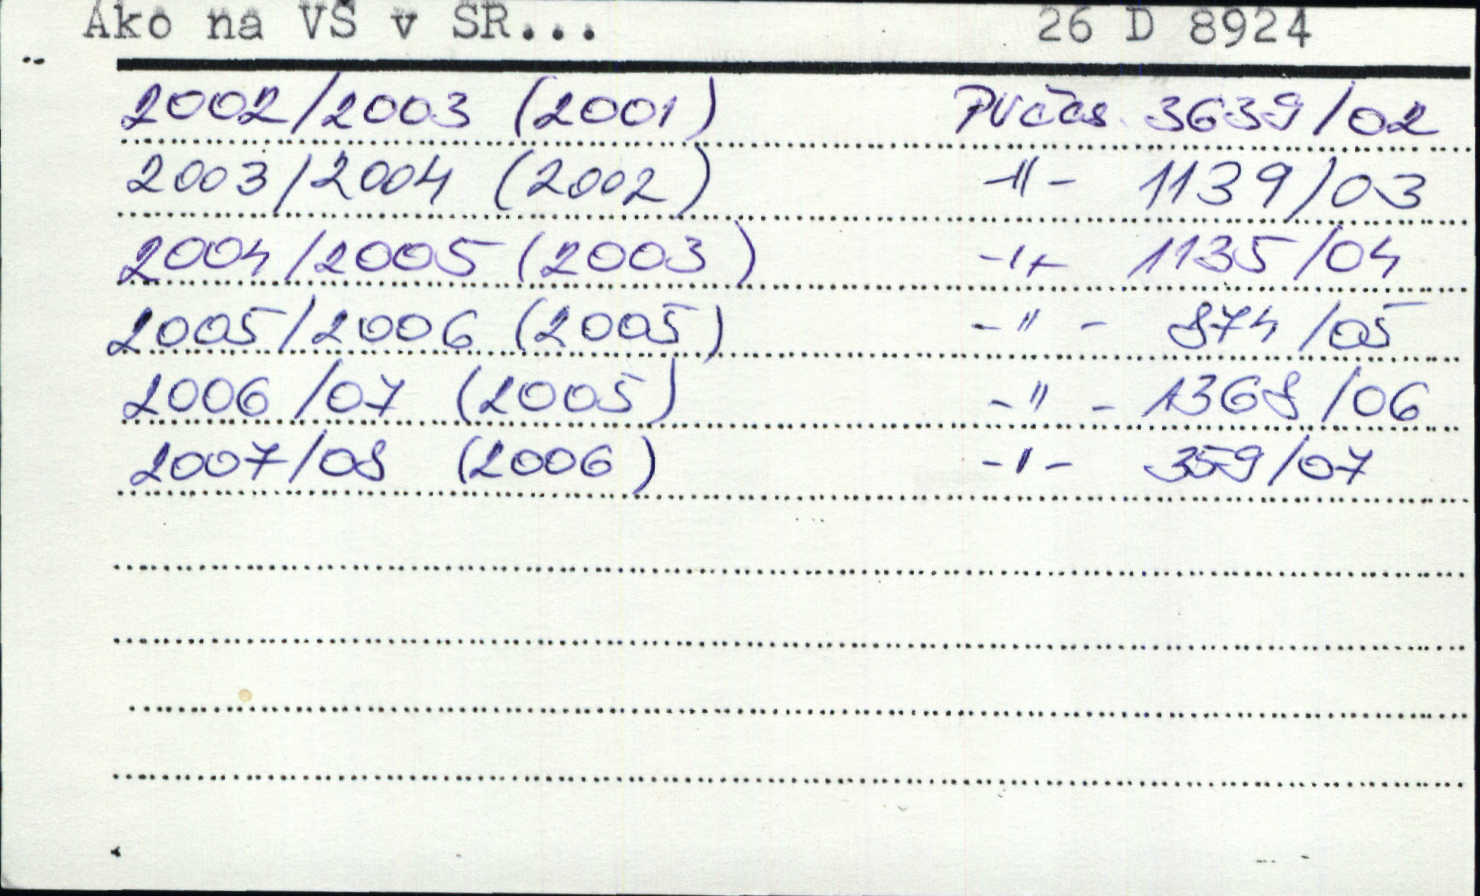 Ako na VŠ v SR... 26 D 8924
2002/2003 (2001) PVčas 3639/02
2003/2004 (2002) -"- 1139/03
2004/2005 (2003) -"- 1135/04
2005/2006 (2005) -"- 874/05
2006/07 (2005) -"- 1368/06
2007/08 (2006) -"- 359/07